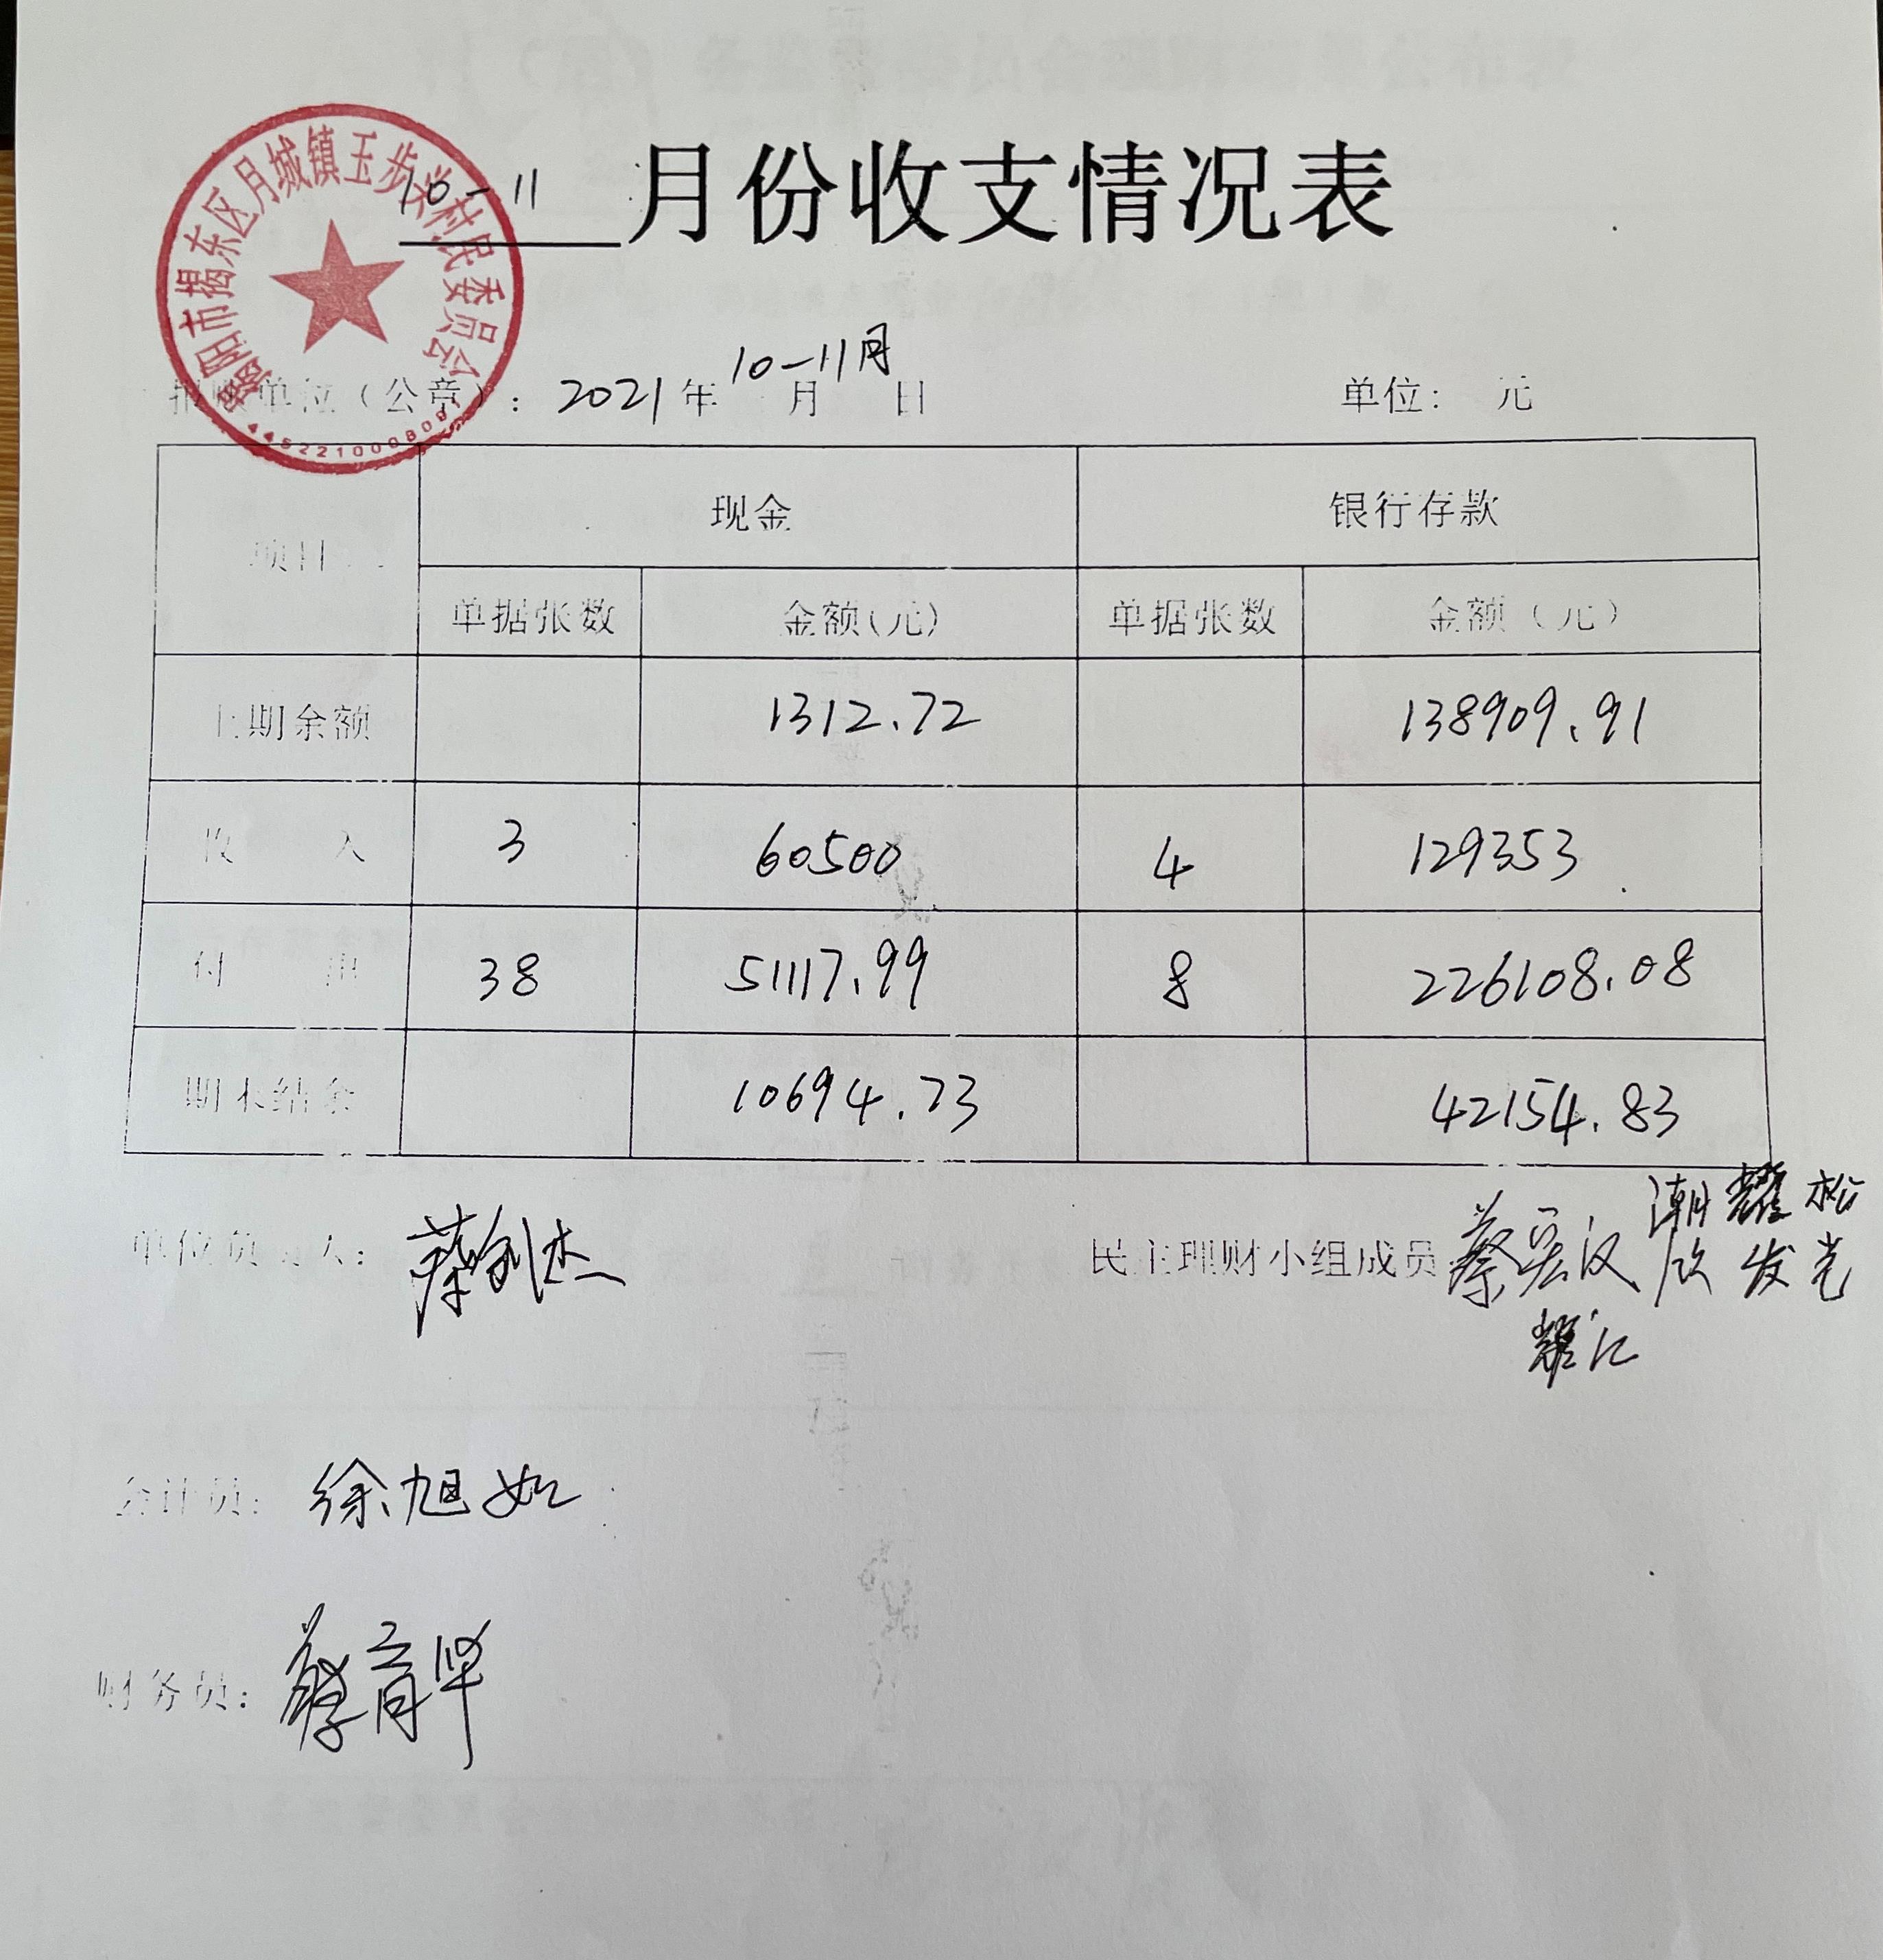 揭阳市揭东区月城镇玉步村民委员会
10-11 月份收支情况表
单位(公章): 2021年 10-11月 月 日 单位: 元
项目 现金 银行存款
单据张数 金额(元) 单据张数 金额(元)
上期余额 1312.72 138909.91
收 入 3 60500 4 129353
付 出 38 51117.99 8 226108.08
期末结余 10694.73 42154.83
单位负责人: 蔡剑杰 民主理财小组成员 蔡宏汉 潮欣 耀松 发光
耀江
会计员: 徐旭如
财务员: 蔡育华